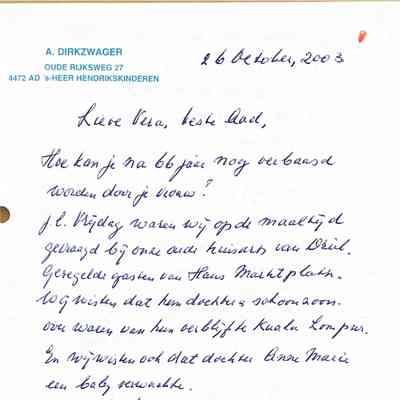 A. DIRKZWAGER
OUDE RIJKSWEG 27
4472 AD 's-HEER HENDRIKSKINDEREN
26 October, 2003
Lieve Vera, beste Aad,
Hoe kan je na 66 jaar nog verbaasd
worden door je vrouw?
j.l. Vrijdag waren wij op de maaltijd
gevraagd bij onze oude huisarts van Driel.
Geregelde gasten van Hans Marktplats.
Wij wisten dat hun dochter & schoonzoon
over waren van hun verblijf te Kuala Lumpur.
En wij wisten ook dat dochter Anne Marie
een baby verwachtte.